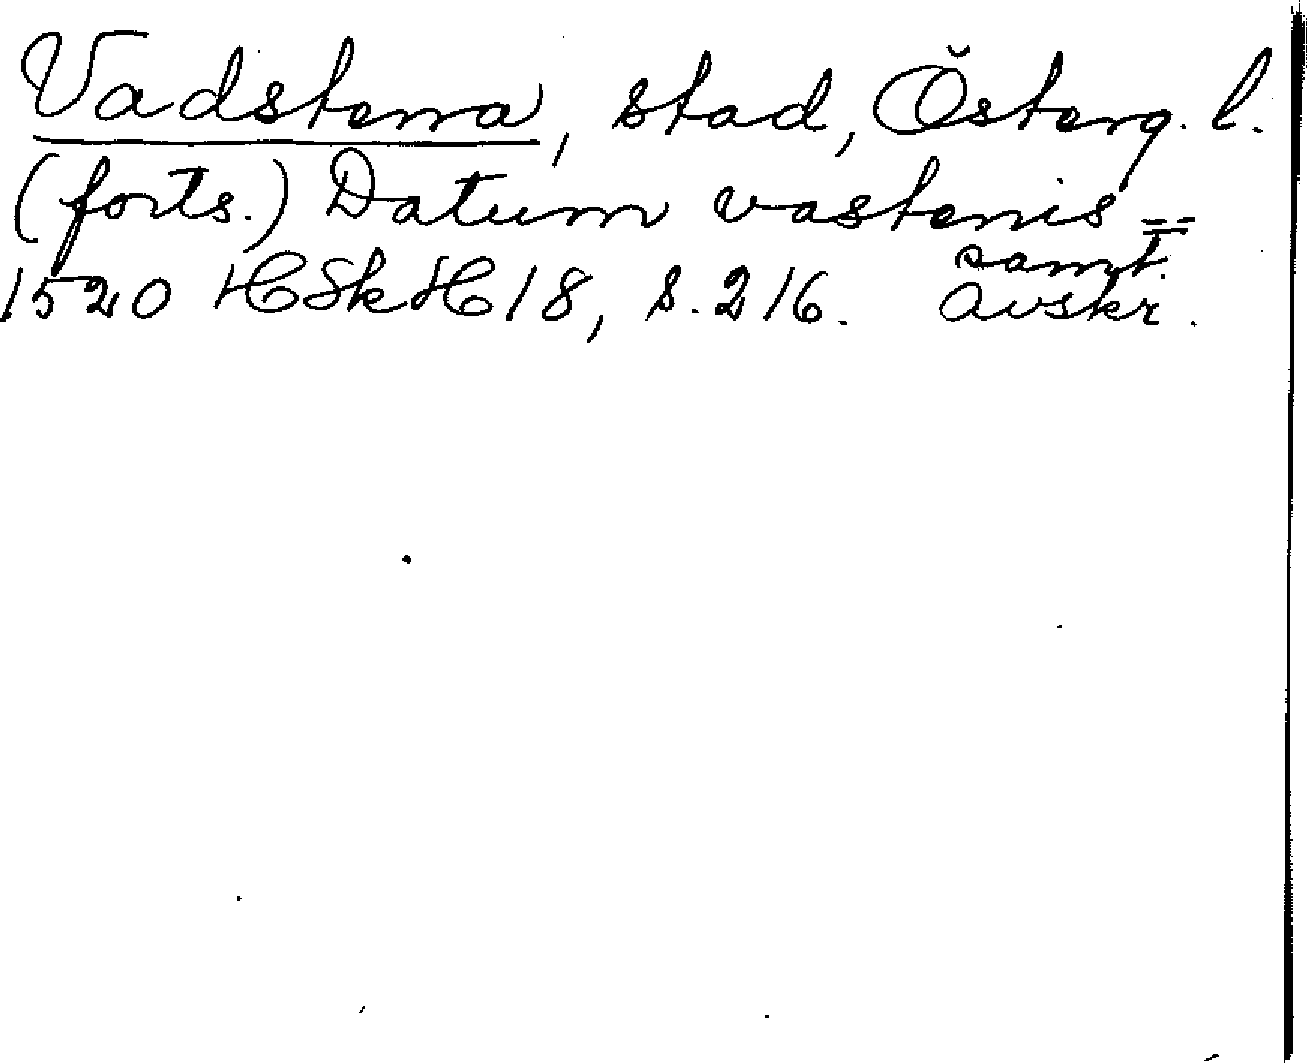 Vadstena, stad, Österg. l.
(forts.) Datum vastenis --
1520 HSkH 18, s. 216. samt.
avskr.